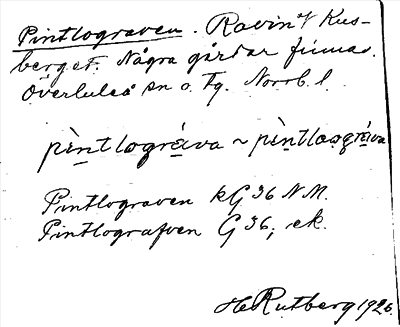 Pintlograven. Ravin i Kus-
berget. Några gårdar finnas.
Överluleå sn o. Tg. Norrb. l.
pèntlográva ~ pèntlasgráva
Pintlograven kG 36 N.M.
Pintlografven G 36, ek.
H. Rutberg 1926.